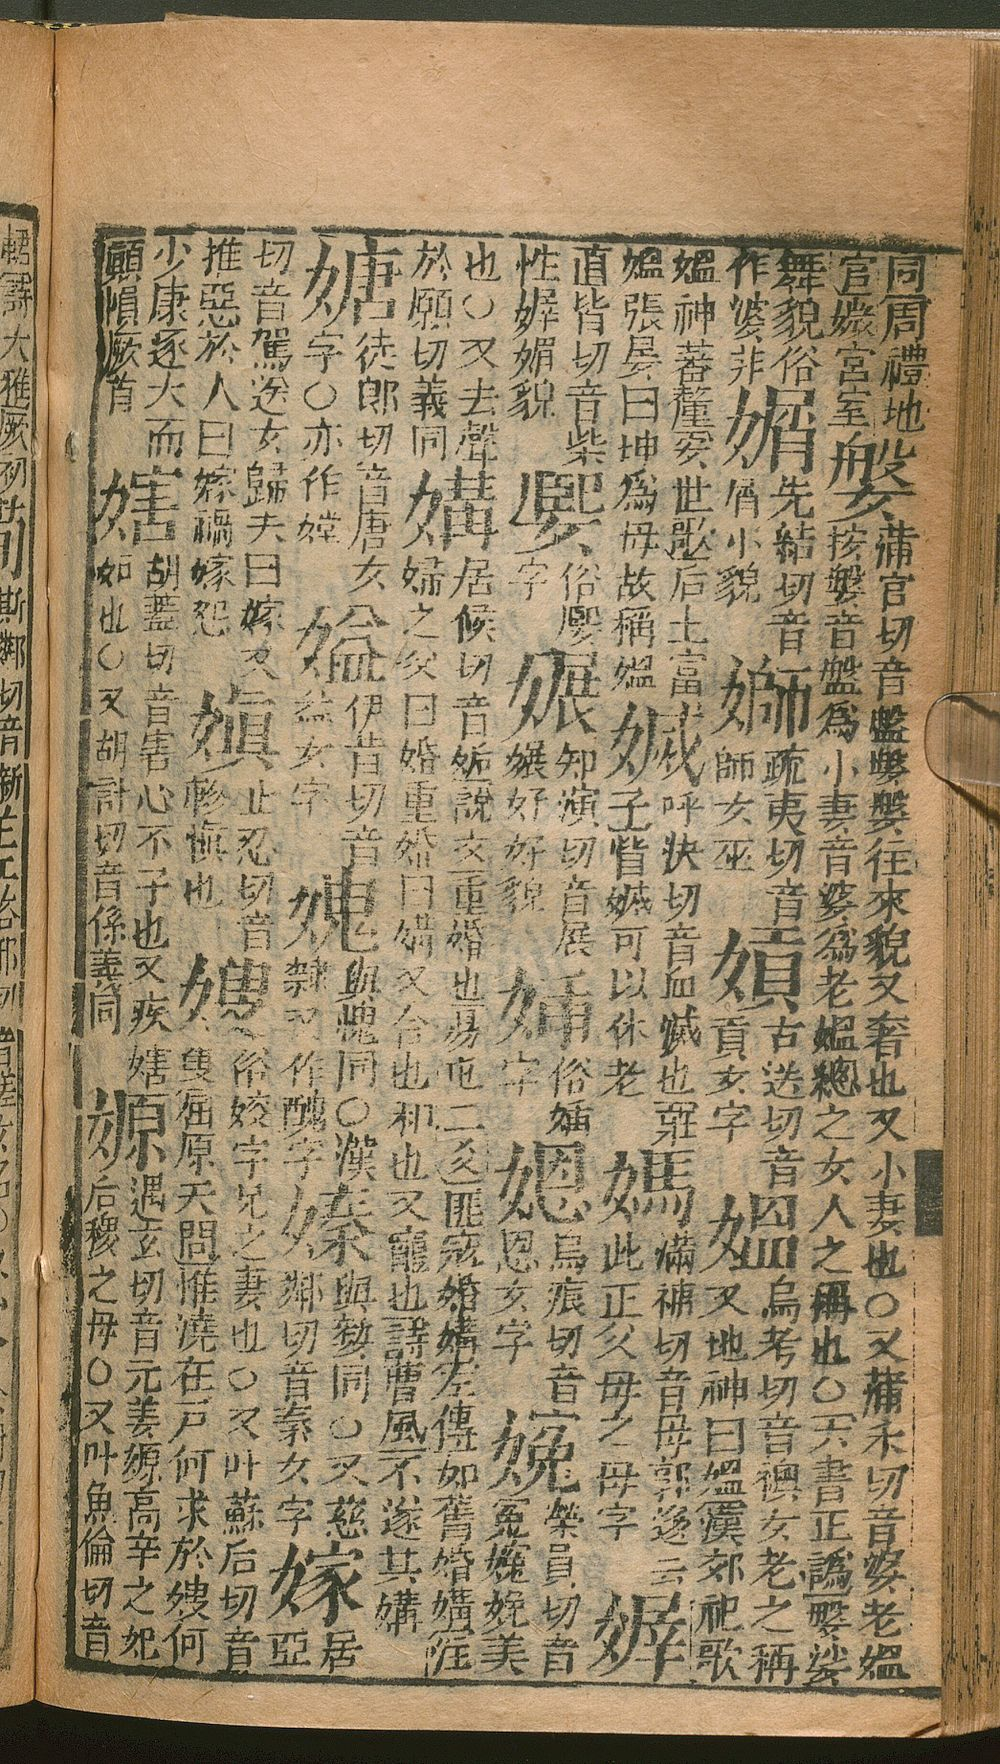 同周禮地
官媺宮室
媻
蒲官切音盤媻媻往來貌又奢也又小妻也○又蒲禾切音婆老媼
按媻音盤為小妻音婆為老媼總之女人之稱也○六書正譌媻娑
舞貌俗
作婆非
先結切音
屑小貌
疏夷切音
師女巫
古送切音
貢女字
媼
烏考切音襖女老之稱
又地神曰媼漢郊祀歌
媼神蕃釐安世歌后土富
媼張晏曰坤為母故稱媼
呼決切音血 也莊
子眥 可以休老
媽
滿補切音母郭逡云
此正父母之母字
直皆切音柴
性 媚貌
俗 
字
知演切音展
好好貌
俗 
字
烏痕切音
恩女字
榮員切音
冤 美
也○又去聲
於願切義同
媾
居候切音姤說文重婚也易屯二爻匪寇婚媾左傳如舊婚媾注
婦之父曰婚重婚曰媾又合也和也又寵也詩曹風不遂其媾
徒郎切音唐女
字○亦作
伊昔切音
益女字
媿
與愧同○漢
隸又作醜字
嫀
同○又慈
鄰切音秦女字
嫁
居
亞
切音駕送女歸夫曰嫁又
推惡於人曰嫁禍嫁怨
嫃
止忍切音
軫慎也
嫂
俗 字兄之妻也○又叶蘇后切音
叟屈原天問惟澆在戶何求於嫂何
少康逐犬而
顛隕厥首
胡蓋切音害心不子也又疾
妬也○又胡計切音係義同
嫄
遇玄切音元姜嫄高辛之妃
后稷之母○又叶魚倫切音
詩大雅厥初
斯鄰切音新